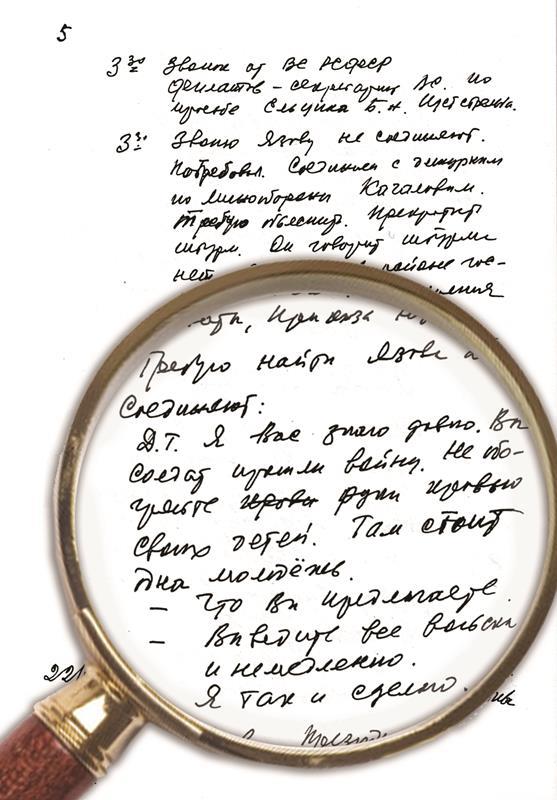 5
3 30 Звонок от ВС РСФСР
Филатов – секретарит ВС. по
просьбе Ельцина Б.Н.
3 30 Звоню Язову не соединяют.
Потребовал. Соединили с дежурным
по Минобороны Качаловым.
Требую объяснит. Прекратит
штурм. Он говорит штурма
нет районе гос-
Требую найти Язова и
Соединяют:
Д.Т. Я Вас знаю давно. Вы
солдат прошли войну. Не обо-
грейте крови руки кровью
своих детей. Там стоит
одна молодёжь.
– Что Вы предлагаете.
– Выведите все войска
и немедленно.
Я так и сделаю.
221